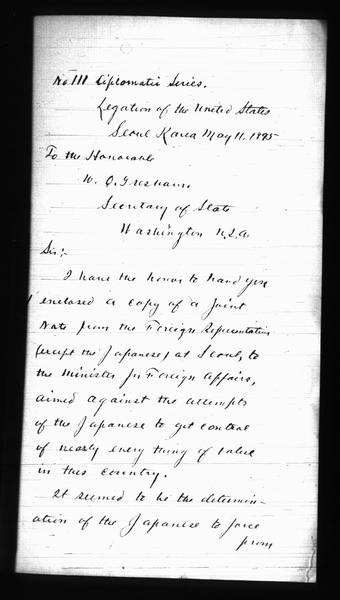 No 111 Diplomatic Series.
Legation of the United States
Seoul Korea May 11. 1895
To the Honorable
W. Q. Gresham.
Secretary of State
Washington U.S.A.
Sir:-
I have the honor to hand you
enclosed a copy of a joint
Note from the Foreign Representatives
(except the Japanese) at Seoul, to
the Minister for Foreign Affairs,
aimed against the attempts
of the Japanese to get control
of nearly every thing of value
in this country.
It seemed to be the determin-
ation of the Japanese to force
from